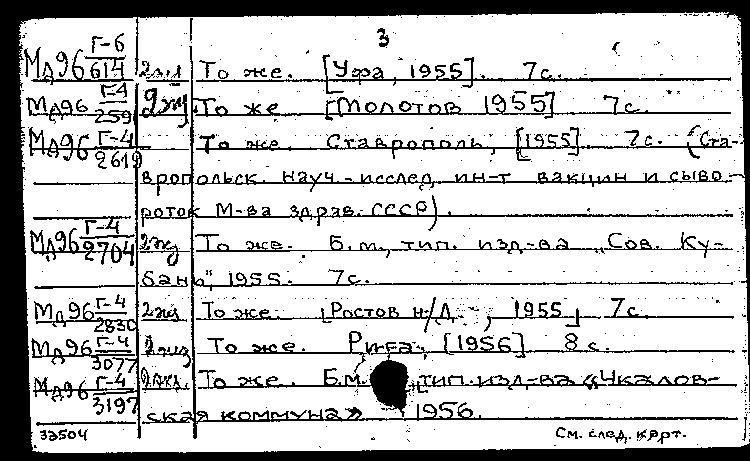 3
Мд96 Г-6/614 2 экз То же. [Уфа, 1955]. 7с.
Мд96 Г-4/259 2 экз. То же [Молотов 1955] 7с.
Мд96 Г-4/2619 То же. Ставрополь, [1955]. 7с. (Ста-
вропольск. науч.-исслед. ин-т вакцин и сыво-
роток М-ва здрав. СССР).
Мд96 Г-4/2704 2 экз То же. Б.м., тип. изд-ва „Сов. Ку-
бань", 1955. 7с.
Мд96 Г-4/2830 2 экз То же. [Ростов н/Д, 1955] 7с.
Мд96 Г-4/3077 2 экз То же. Рига, [1956] 8с.
Мд96 Г-4/3197 2 экз. То же. Б.м., тип. изд-ва «Чкалов-
ская коммуна» 1956.
33504 См. след. карт.